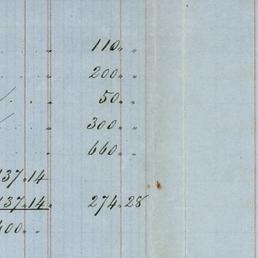 " 110 " "
" 200 " "
" 50 " "
" 300 " "
" 660 " "
137.14
137.14 274.28
400 " "